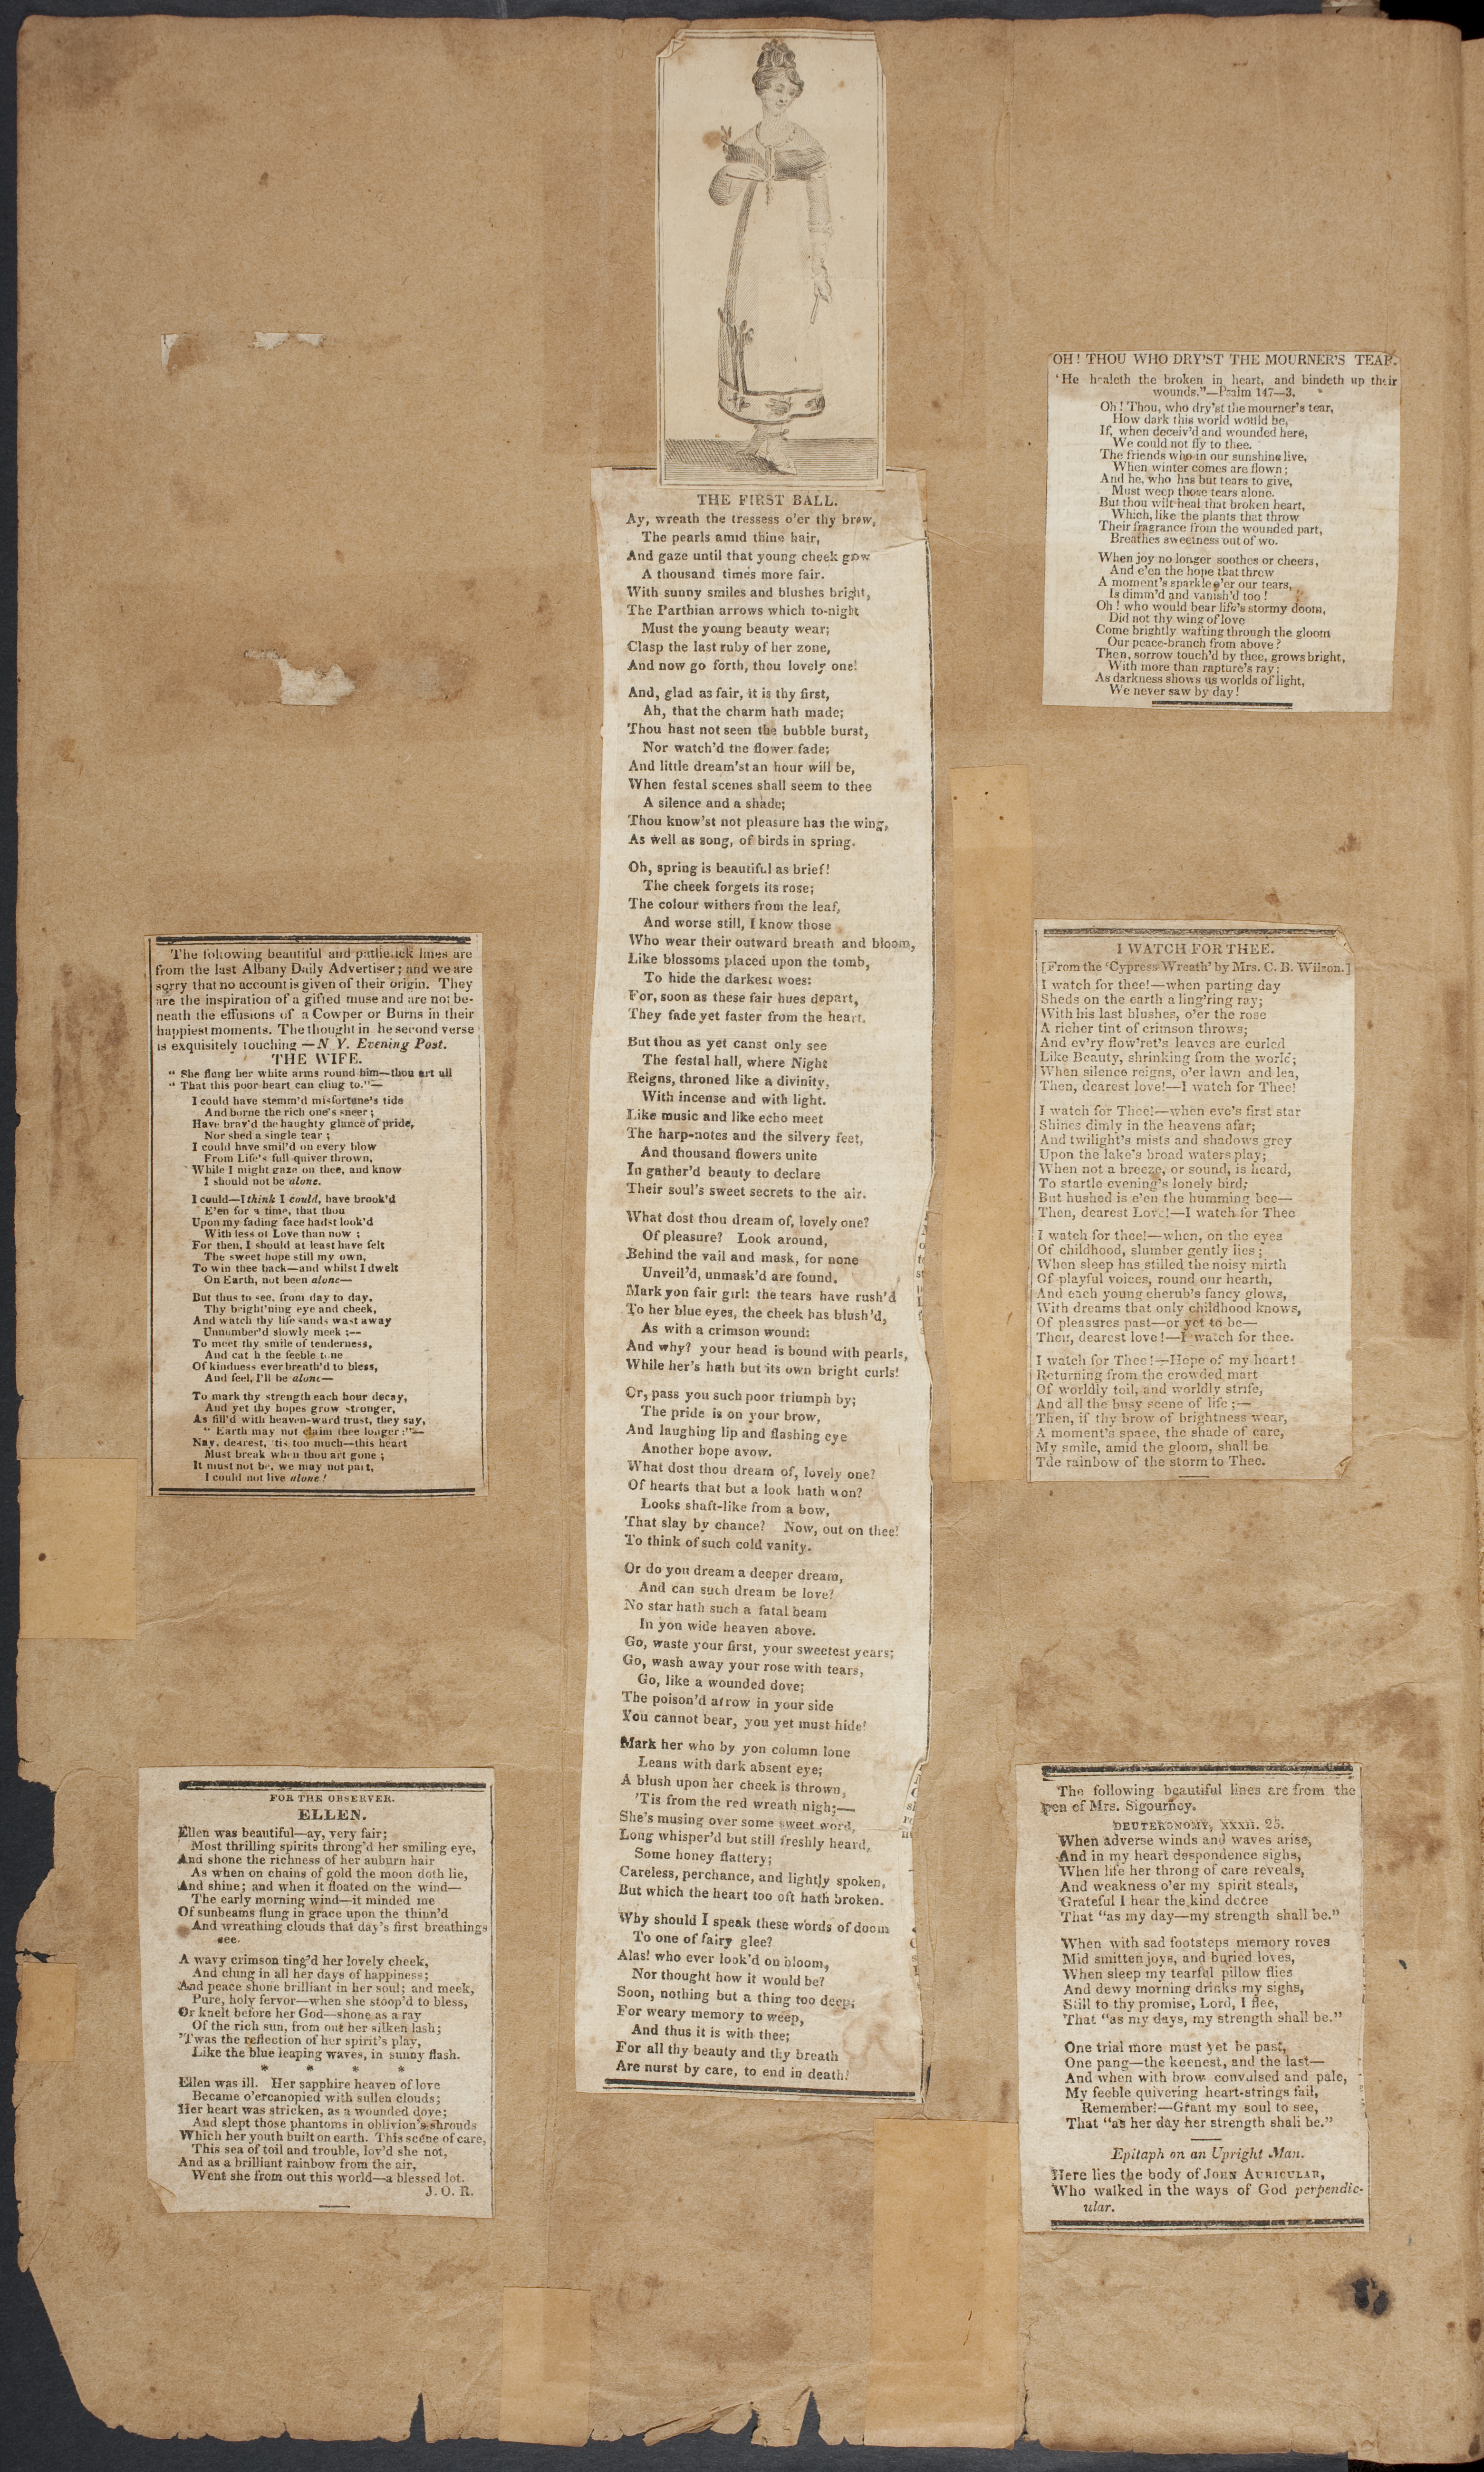 The following beautiful and pathetick lines are
from the last Albany Daily Advertiser; and we are
sorry that no account is given of their origin. They
are the inspiration of a gifted muse and are not be-
neath the effusions of a Cowper or Burns in their
happiest moments. The thought in he second verse
is exquisitely touching —N Y. Evening Post.
THE WIFE.
" She flung her white arms round him—thou art all
" That this poor heart can cling to."—
I could have stemm'd misfortune's tide
And borne the rich one's sneer;
Have brav'd the haughty glance of pride,
Nor shed a single tear;
I could have smil'd on every blow
From Life's full quiver thrown,
While I might gaze on thee, and know
I should not be alone.
I could—I think I could, have brook'd
E'en for a time, that thou
Upon my fading face hadst look'd
With less of Love than now ;
For then, I should at least have felt
The sweet hope still my own,
To win thee back—and whilst I dwelt
On Earth, not been alone—
But thus to see, from day to day,
Thy bright'ning eye and cheek,
And watch thy life sands wast away
Unnumber'd slowly meek ;—
To meet thy smile of tenderness,
And cat h the feeble tone
Of kindness ever breath'd to bless,
And feel, I'll be alone—
To mark thy strength each hour decay,
And yet thy hopes grow stronger,
As fill'd with heaven-ward trust, they say,
" Earth may not claim thee longer:"—
Nay, dearest, 'tis too much—this heart
Must break when thou art gone ;
It must not be, we may not part,
I could not live alone!
FOR THE OBSERVER.
ELLEN.
Ellen was beautiful—ay, very fair;
Most thrilling spirits throng'd her smiling eye,
And shone the richness of her auburn hair
As when on chains of gold the moon doth lie,
And shine; and when it floated on the wind—
The early morning wind—it minded me
Of sunbeams flung in grace upon the thinn'd
And wreathing clouds that day's first breathings
see.
A wavy crimson ting'd her lovely cheek,
And clung in all her days of happiness;
And peace shone brilliant in her soul; and meek,
Pure, holy fervor—when she stoop'd to bless,
Or knelt before her God—shone as a ray
Of the rich sun, from out her silken lash;
'Twas the reflection of her spirit's play,
Like the blue leaping waves, in sunny flash.
* * * *
Ellen was ill. Her sapphire heaven of love
Became o'ercanopied with sullen clouds;
Her heart was stricken, as a wounded dove;
And slept those phantoms in oblivion's shrouds
Which her youth built on earth. This scene of care,
This sea of toil and trouble, lov'd she not,
And as a brilliant rainbow from the air,
Went she from out this world—a blessed lot.
J. O. R.
THE FIRST BALL.
Ay, wreath the tressess o'er thy brow,
The pearls amid thine hair,
And gaze until that young cheek grow
A thousand times more fair.
With sunny smiles and blushes bright,
The Parthian arrows which to-night
Must the young beauty wear;
Clasp the last ruby of her zone,
And now go forth, thou lovely one!
And, glad as fair, it is thy first,
Ah, that the charm hath made;
Thou hast not seen the bubble burst,
Nor watch'd the flower fade;
And little dream'st an hour will be,
When festal scenes shall seem to thee
A silence and a shade;
Thou know'st not pleasure has the wing,
As well as song, of birds in spring.
Oh, spring is beautiful as brief!
The cheek forgets its rose;
The colour withers from the leaf,
And worse still, I know those
Who wear their outward breath and bloom,
Like blossoms placed upon the tomb,
To hide the darkest woes:
For, soon as these fair hues depart,
They fade yet faster from the heart.
But thou as yet canst only see
The festal hall, where Night
Reigns, throned like a divinity,
With incense and with light.
Like music and like echo meet
The harp-notes and the silvery feet,
And thousand flowers unite
In gather'd beauty to declare
Their soul's sweet secrets to the air.
What dost thou dream of, lovely one?
Of pleasure? Look around,
Behind the vail and mask, for none
Unveil'd, unmask'd are found.
Mark yon fair girl: the tears have rush'd
To her blue eyes, the cheek has blush'd,
As with a crimson wound:
And why? your head is bound with pearls,
While her's hath but its own bright curls!
Or, pass you such poor triumph by;
The pride is on your brow,
And laughing lip and flashing eye
Another hope avow.
What dost thou dream of, lovely one?
Of hearts that but a look hath won?
Looks shaft-like from a bow,
That slay by chance? Now, out on thee!
To think of such cold vanity.
Or do you dream a deeper dream,
And can such dream be love?
No star hath such a fatal beam
In yon wide heaven above.
Go, waste your first, your sweetest years;
Go, wash away your rose with tears,
Go, like a wounded dove;
The poison'd arrow in your side
You cannot bear, you yet must hide!
Mark her who by yon column lone
Leans with dark absent eye;
A blush upon her cheek is thrown,
'Tis from the red wreath nigh;—
She's musing over some sweet word,
Long whisper'd but still freshly heard,
Some honey flattery;
Careless, perchance, and lightly spoken,
But which the heart too oft hath broken.
Why should I speak these words of doom
To one of fairy glee?
Alas! who ever look'd on bloom,
Nor thought how it would be?
Soon, nothing but a thing too deep,
For weary memory to weep,
And thus it is with thee;
For all thy beauty and thy breath
Are nurst by care, to end in death!
OH! THOU WHO DRY'ST THE MOURNER'S TEAR.
'He healeth the broken in heart, and bindeth up their
wounds."—Psalm 147—3.
Oh! Thou, who dry'st the mourner's tear,
How dark this world would be,
If, when deceiv'd and wounded here,
We could not fly to thee.
The friends who in our sunshine live,
When winter comes are flown;
And he, who has but tears to give,
Must weep those tears alone.
But thou wilt heal that broken heart,
Which, like the plants that throw
Their fragrance from the wounded part,
Breathes sweetness out of wo.
When joy no longer soothes or cheers,
And e'en the hope that threw
A moment's sparkle o'er our tears,
Is dimm'd and vanish'd too!
Oh! who would bear life's stormy doom,
Did not thy wing of love
Come brightly wafting through the gloom
Our peace-branch from above?
Then, sorrow touch'd by thee, grows bright,
With more than rapture's ray;
As darkness shows us worlds of light,
We never saw by day!
I WATCH FOR THEE.
[From the 'Cypress Wreath' by Mrs. C. B. Wilson.]
I watch for thee!—when parting day
Sheds on the earth a ling'ring ray;
With his last blushes, o'er the rose
A richer tint of crimson throws;
And ev'ry flow'ret's leaves are curled
Like Beauty, shrinking from the world;
When silence reigns, o'er lawn and lea,
Then, dearest love!—I watch for Thee!
I watch for Thee!—when eve's first star
Shines dimly in the heavens afar;
And twilight's mists and shadows grey
Upon the lake's broad waters play;
When not a breeze, or sound, is heard,
To startle evening's lonely bird;
But hushed is e'en the humming bee—
Then, dearest Love!—I watch for Thee
I watch for thee!—when, on the eyes
Of childhood, slumber gently lies;
When sleep has stilled the noisy mirth
Of playful voices, round our hearth,
And each young cherub's fancy glows,
With dreams that only childhood knows,
Of pleasures past—or yet to be—
Then, dearest love!—I watch for thee.
I watch for Thee!—Hope of my heart!
Returning from the crowded mart
Of worldly toil, and worldly strife,
And all the busy scene of life;—
Then, if thy brow of brightness wear,
A moment's space, the shade of care,
My smile, amid the gloom, shall be
Tde rainbow of the storm to Thee.
The following beautiful lines are from the
pen of Mrs. Sigourney.
DEUTERONOMY, XXXII. 25.
When adverse winds and waves arise,
And in my heart despondence sighs,
When life her throng of care reveals,
And weakness o'er my spirit steals,
Grateful I hear the kind decree
That "as my day—my strength shall be."
When with sad footsteps memory roves
Mid smitten joys, and buried loves,
When sleep my tearful pillow flies
And dewy morning drinks my sighs,
Still to thy promise, Lord, I flee,
That "as my days, my strength shall be."
One trial more must yet be past,
One pang—the keenest, and the last—
And when with brow convulsed and pale,
My feeble quivering heart-strings fail,
Remember!—Grant my soul to see,
That "as her day her strength shall be."
Epitaph on an Upright Man.
Here lies the body of JOHN AURICULAR,
Who walked in the ways of God perpendic-
ular.